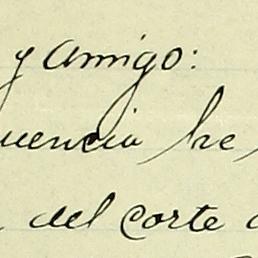 y amigo:
uencia he
del corte